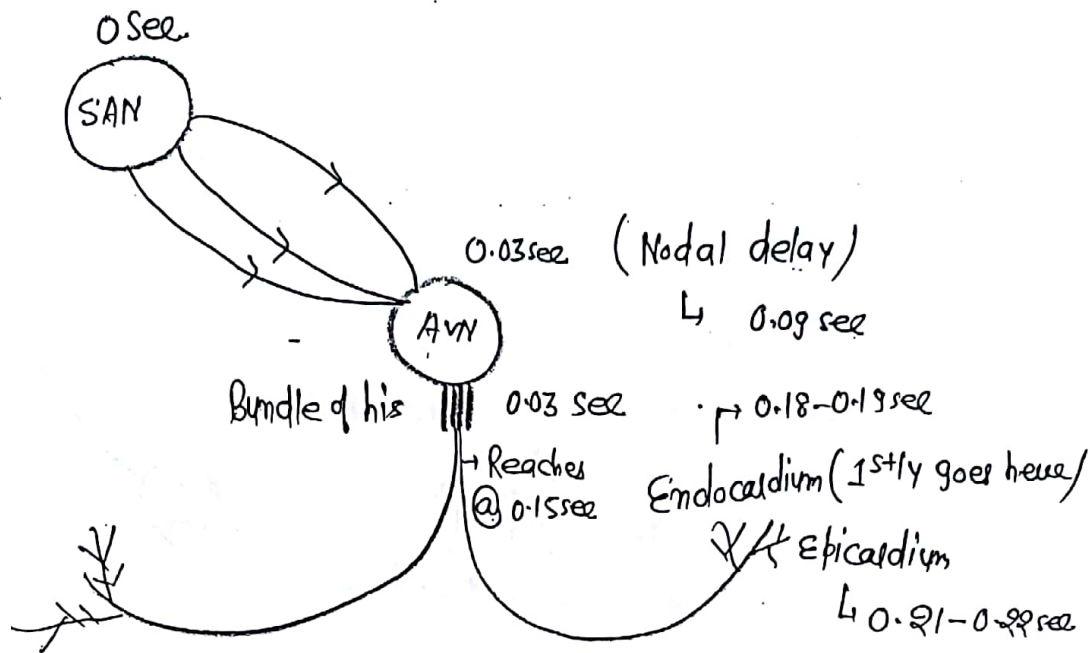 0 Sec
SAN
0.03 sec (Nodal delay)
↳ 0.09 sec
AVN
Bundle of his 0.03 sec
→ Reaches
@ 0.15 sec
→ 0.18-0.19 sec
Endocardium (1stly goes here)
Epicardium
↳ 0.21-0.22 sec